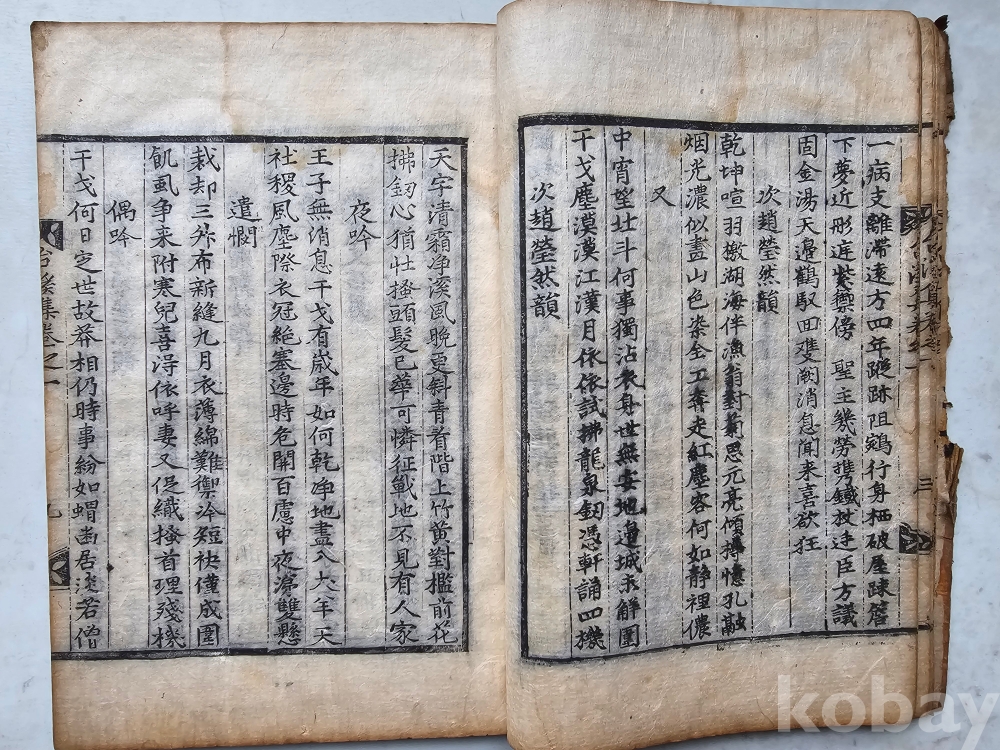 一病支離滯遠方四年蹤跡阻鵷行身栖破屋踈簷
下夢近彤庭紫禁傍 聖主幾勞携鐵杖廷臣方議
固金湯天邊鶴馭回雙闕消息聞来喜欲狂
次趙瑩然韻
乾坤喧羽檄湖海伴漁翁對菊思元亮傾搏憶孔融
烟光濃似畫山色染全工奔走紅塵客何如静裡儂
又
中宵望北斗何事獨沾衣身世無安地邉城未解圍
干戈塵漠漠江漢月依依試拂龍泉釼憑軒誦四機
次趙瑩然韻
天宇清霜净溪風晚更斜青看階上竹黄對檻前花
拂釼心猶壮搔頭髮已華可憐征戰地不見有人家
夜吟
王子無消息干戈有歲年如何乾净地盡入犬羊天
社稷風塵際衣冠絶塞邊時危開百慮中夜涕雙懸
遣悶
栽却三升布新縫九月衣薄綿難禦冷短袂僅成圍
飢虱争来附寒兒喜得依呼妻又促織搔首理殘機
偶吟
干戈何日定世故莽相仍時事紛如蝟幽居淡若僧
集卷之一
九
三
kobay